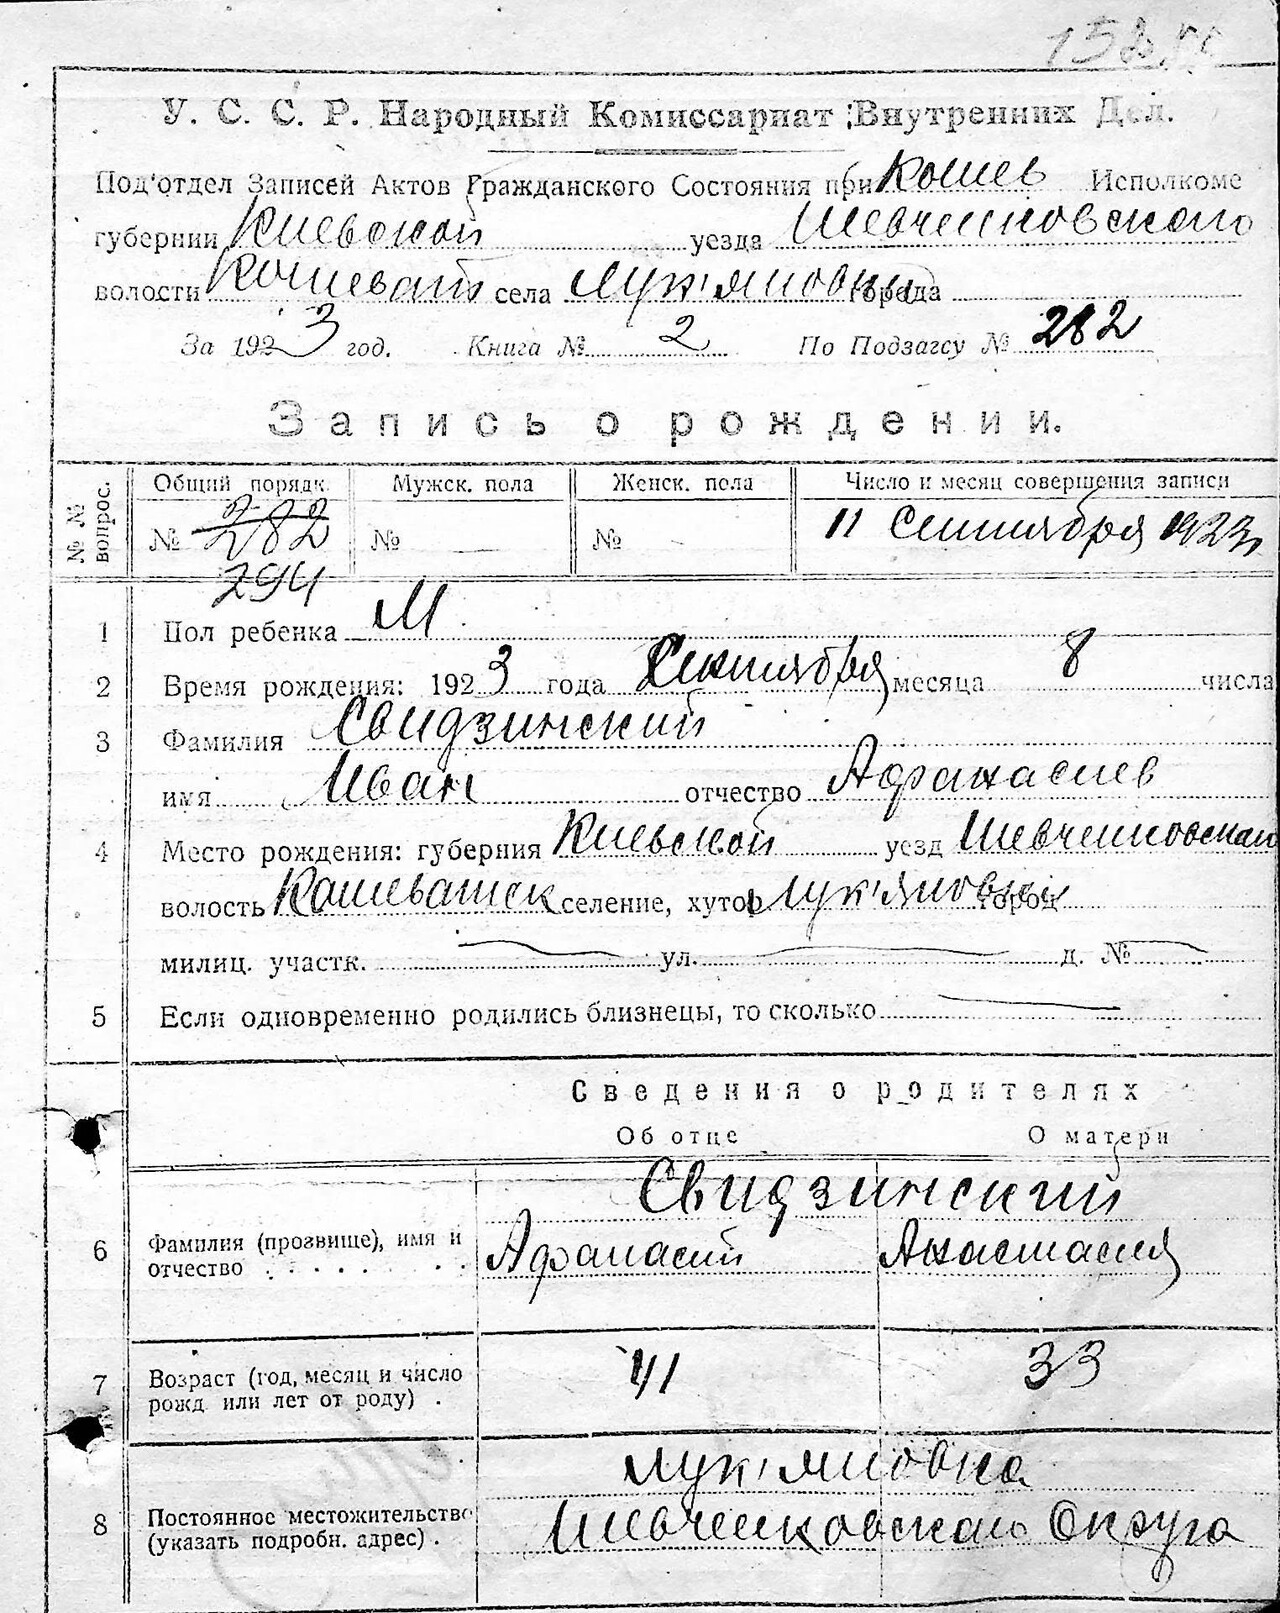 152
У. С. С. Р. Народный Комиссариат Внутренних Дел.
Под'отдел Записей Актов Гражданского Состояния при Кошев Исполкоме
губернии Киевской уезда Шевченковского
волости Кошеватй села Лук'яновки города
За 1923 год. Книга № 2 По Подзагсу № 282
Запись о рождении.
№ № вопрос. Общий порядк. Мужск. пола Женск. пола Число и месяц совершения записи
№ 282 № — № — 11 Сентября 1923
294
1 Пол ребенка М.
2 Время рождения: 1923 года Сентября месяца 8 числа
3 Фамилия Свидзинский
имя Иван отчество Афанасиев
4 Место рождения: губерния Киевской уезд Шевченковского
волость Кошеватск селение, хутор Лук'яновки город
милиц. участк. — ул. — д. № —
5 Если одновременно родились близнецы, то сколько —
Сведения о родителях
Об отце О матери
Свидзинский
6 Фамилия (прозвище), имя и отчество . . . . . . . . Афанасий Анастасия
7 Возраст (год, месяц и число рожд. или лет от роду) . 41 33
Лук'яновка
8 Постоянное местожительство (указать подробн. адрес) . Шевченковского Округа